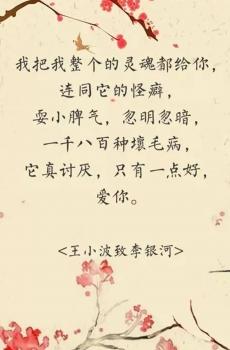 我把我整个的灵魂都给你，
连同它的怪癖，
耍小脾气，忽明忽暗，
一千八百种坏毛病，
它真讨厌，只有一点好，
爱你。
<王小波致李银河>